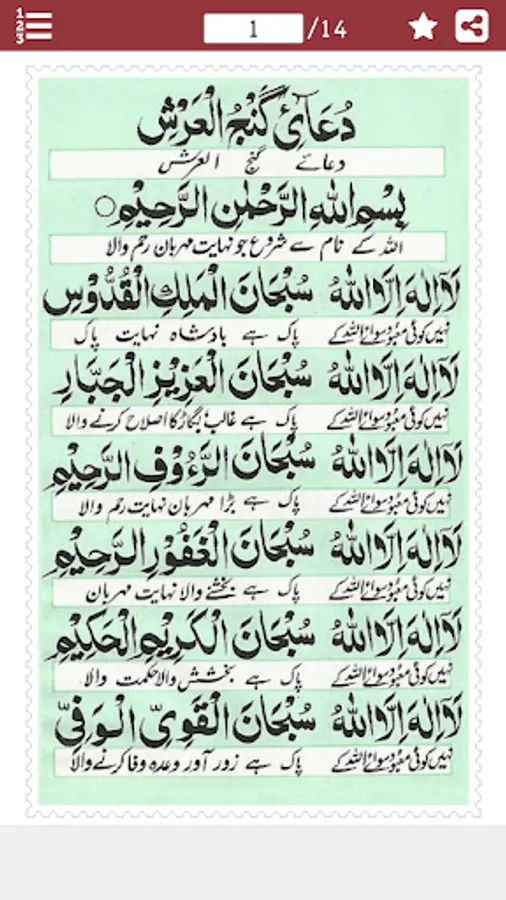 1
2
3
1 /14
دُعَآئِ گَنْجُ الْعَرْشِ
دعائے گنج العرش
بِسْمِ اللهِ الرَّحْمٰنِ الرَّحِيْمِ○
اللہ کے نام سے شروع جو نہایت مہربان رحم والا
لَآ اِلٰهَ اِلَّا اللهُ سُبْحَانَ الْمَلِكِ الْقُدُّوْسِ
نہیں کوئی معبود سوائے اللہ کے پاک ہے بادشاہ نہایت پاک
لَآ اِلٰهَ اِلَّا اللهُ سُبْحَانَ الْعَزِيْزِ الْجَبَّارِ
نہیں کوئی معبود سوائے اللہ کے پاک ہے غالب بگاڑ کا اصلاح کرنے والا
لَآ اِلٰهَ اِلَّا اللهُ سُبْحَانَ الرَّءُوْفِ الرَّحِيْمِ
نہیں کوئی معبود سوائے اللہ کے پاک ہے بڑا مہربان نہایت رحم والا
لَآ اِلٰهَ اِلَّا اللهُ سُبْحَانَ الْغَفُوْرِ الرَّحِيْمِ
نہیں کوئی معبود سوائے اللہ کے پاک ہے بخشنے والا نہایت مہربان
لَآ اِلٰهَ اِلَّا اللهُ سُبْحَانَ الْكَرِيْمِ الْحَكِيْمِ
نہیں کوئی معبود سوائے اللہ کے پاک ہے بخشش والا حکمت والا
لَآ اِلٰهَ اِلَّا اللهُ سُبْحَانَ الْقَوِيِّ الْوَفِيِّ
نہیں کوئی معبود سوائے اللہ کے پاک ہے زور آور وعدہ وفا کرنے والا